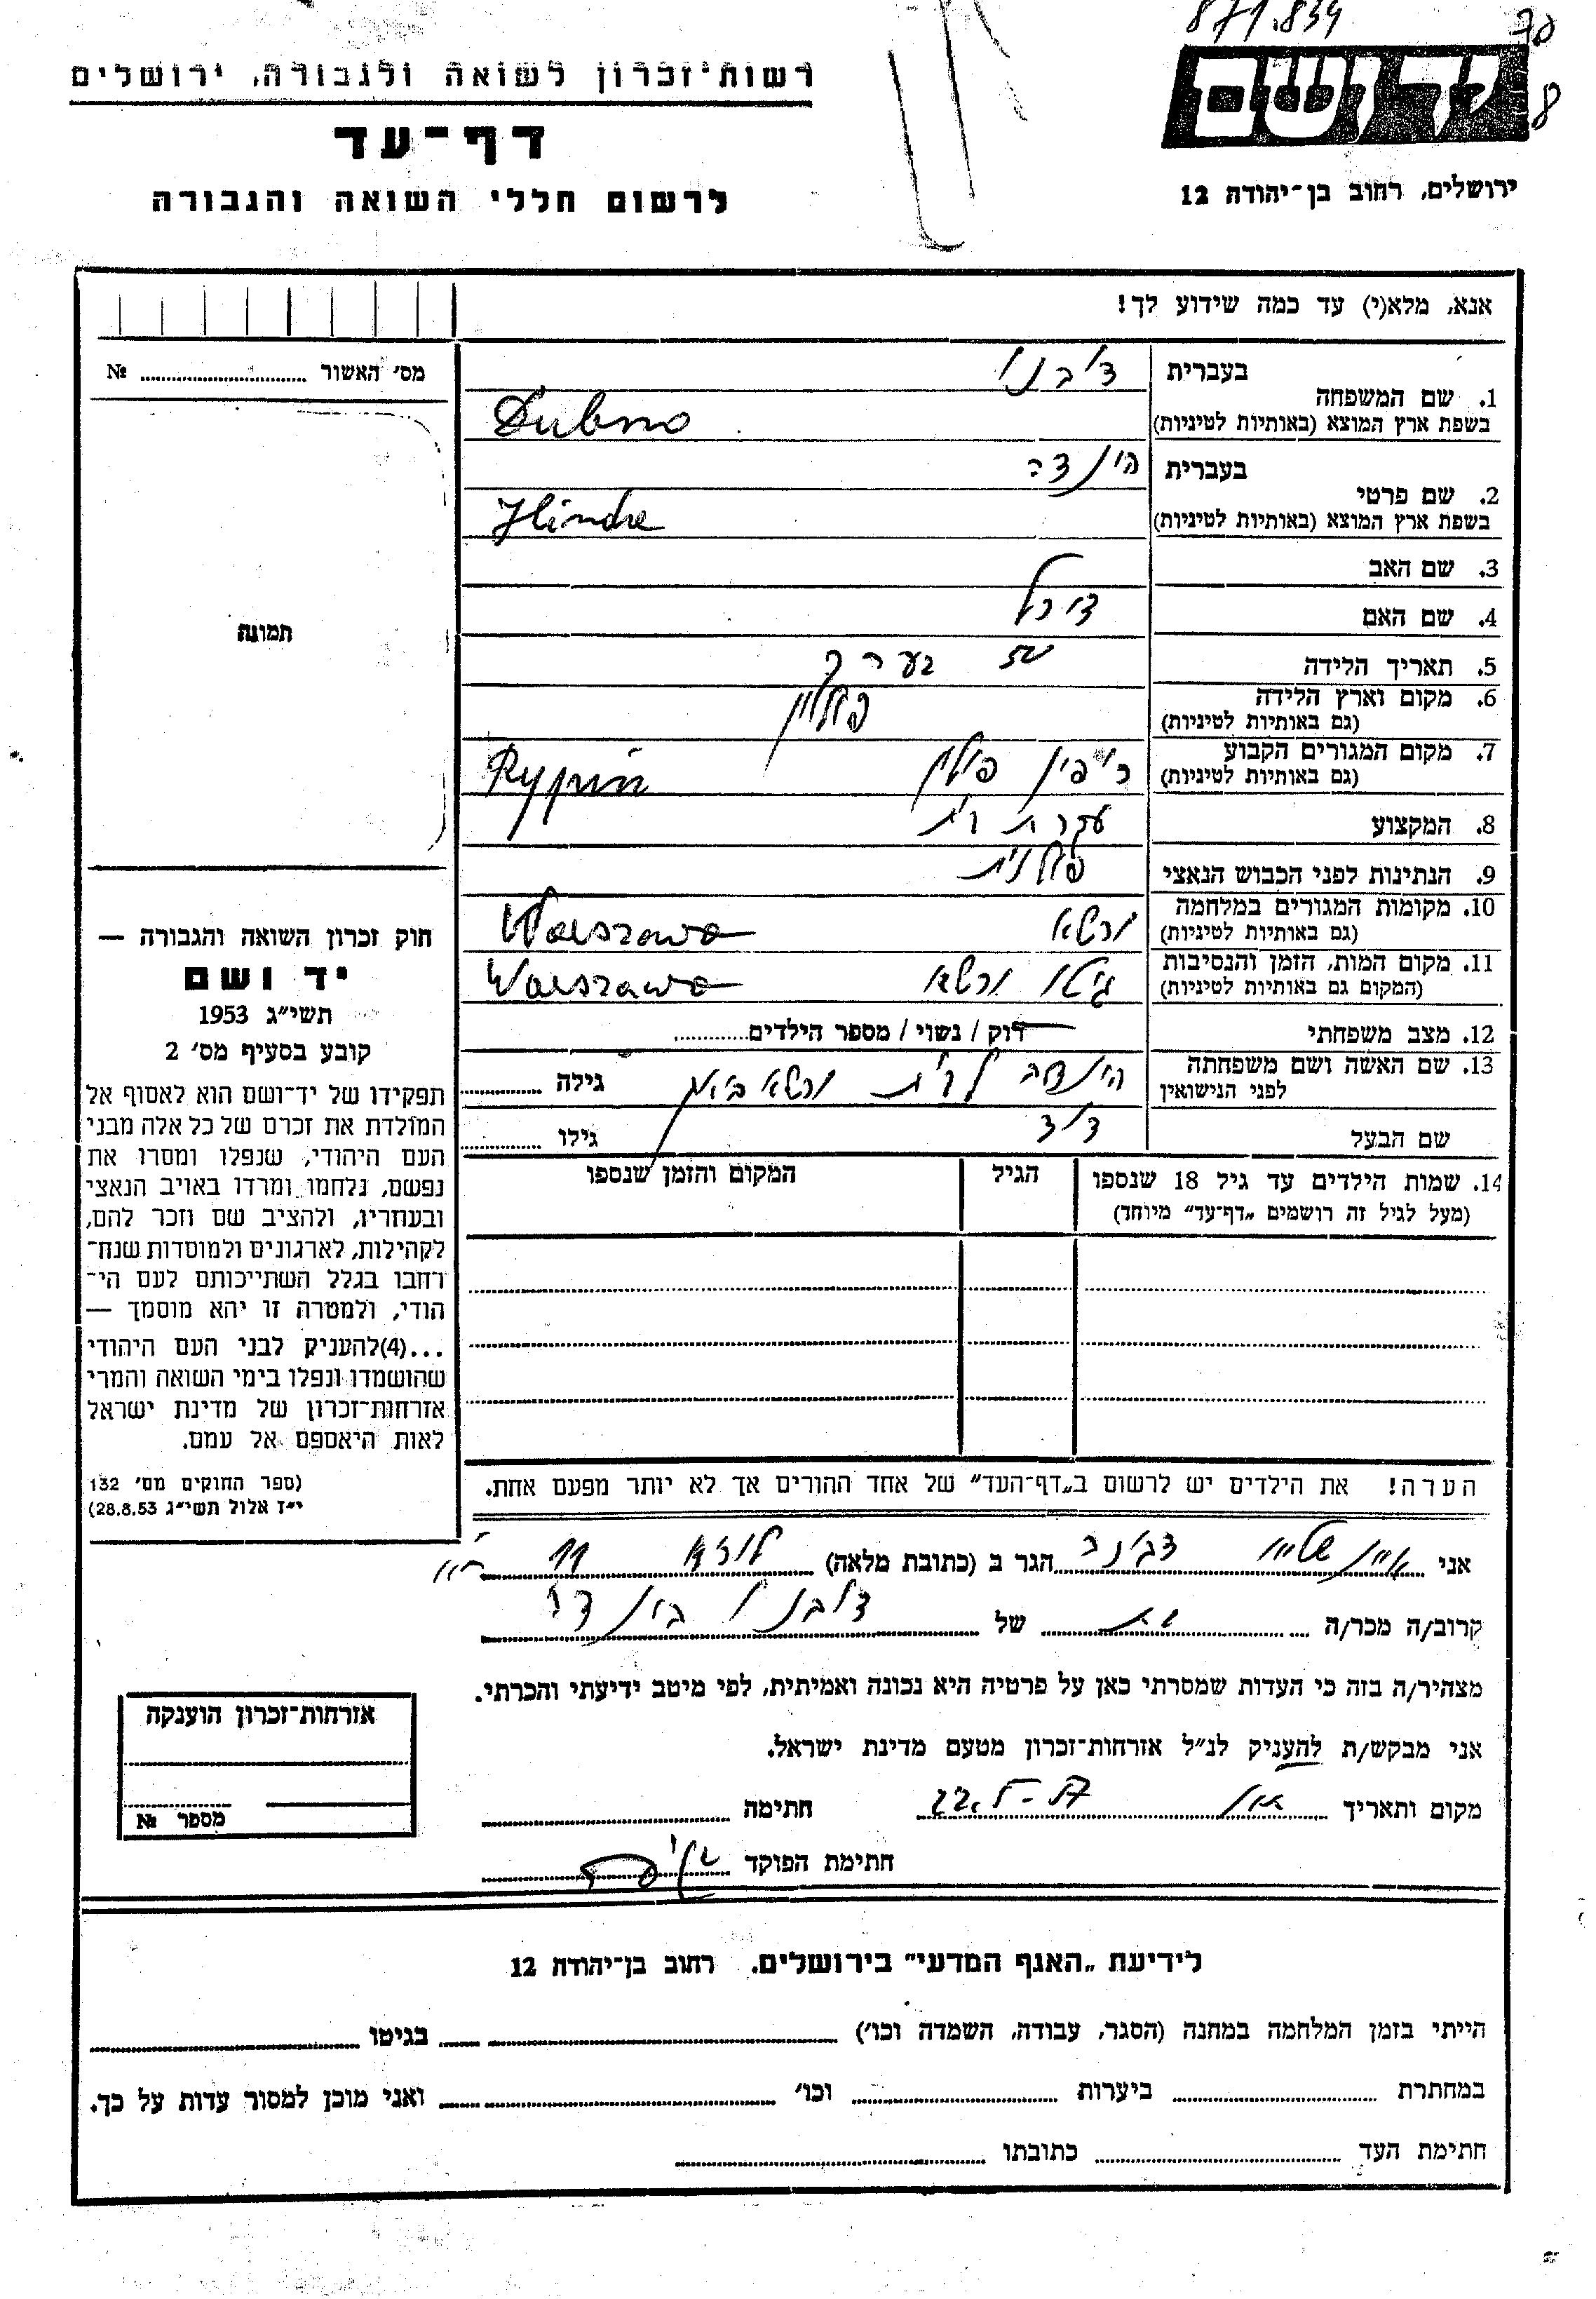 871.834
רשות־זכרון לשואה ולגבורה, ירושלים
יד ושם
דף־עד
לרשום חללי השואה והגבורה
ירושלים, רחוב בן־יהודה 12
אנא, מלא(י) עד כמה שידוע לך!
מס׳ האשור № ........
1. שם המשפחה
בעברית דובנו
בשפת ארץ המוצא (באותיות לטיניות) Dubno
2. שם פרטי
בעברית הינדה
בשפת ארץ המוצא (באותיות לטיניות) Hinde
3. שם האב
4. שם האם
5. תאריך הלידה 50 בערך
6. מקום וארץ הלידה פולין
(גם באותיות לטיניות)
7. מקום המגורים הקבוע ריפין פולין Rypin
(גם באותיות לטיניות)
8. המקצוע עקרת בית
9. הנתינות לפני הכבוש הנאצי פולנית
10. מקומות המגורים במלחמה ורשא Warszawa
(גם באותיות לטיניות)
11. מקום המות, הזמן והנסיבות גיטו ורשא Warszawa
(המקום גם באותיות לטיניות)
12. מצב משפחתי רוק / נשוי / מספר הילדים........
13. שם האשה ושם משפחתה הינדה גילה ........
לפני הנישואין
שם הבעל דוד גילו ........
14. שמות הילדים עד גיל 18 שנספו הגיל המקום והזמן שנספו
(מעל לגיל זה רושמים „דף־עד” מיוחד)
תמונה
חוק זכרון השואה והגבורה —
יד ושם
תשי״ג 1953
קובע בסעיף מס׳ 2
תפקידו של יד־ושם הוא לאסוף אל
המולדת את זכרם של כל אלה מבני
העם היהודי, שנפלו ומסרו את
נפשם, נלחמו ומרדו באויב הנאצי
ובעוזריו, ולהציב שם וזכר להם,
לקהילות, לארגונים ולמוסדות שנח־
רבו בגלל השתייכותם לעם הי־
הודי, ולמטרה זו יהא מוסמך —
...(4)להעניק לבני העם היהודי
שהושמדו ונפלו בימי השואה והמרי
אזרחות־זכרון של מדינת ישראל
לאות היאספם אל עמם.
(ספר החוקים מס׳ 132
י״ז אלול תשי״ג 28.8.53)
הערה! את הילדים יש לרשום ב„דף־העד” של אחד ההורים אך לא יותר מפעם אחת.
אני איינשטיין הגר ב (כתובת מלאה) 11
קרוב/ה מכר/ה של דובנו הינדה
מצהיר/ה בזה כי העדות שמסרתי כאן על פרטיה היא נכונה ואמיתית, לפי מיטב ידיעתי והכרתי.
אני מבקש/ת להעניק לנ״ל אזרחות־זכרון מטעם מדינת ישראל.
מקום ותאריך חתימה
חתימת הפוקד
אזרחות־זכרון הוענקה
מספר №
לידיעת „האגף המדעי” בירושלים. רחוב בן־יהודה 12
הייתי בזמן המלחמה במחנה (הסגר, עבודה, השמדה וכו׳) ........ בגיטו ........
במחתרת ........ ביערות ........ וכו׳ ........ ואני מוכן למסור עדות על כך.
חתימת העד ........ כתובתו ........